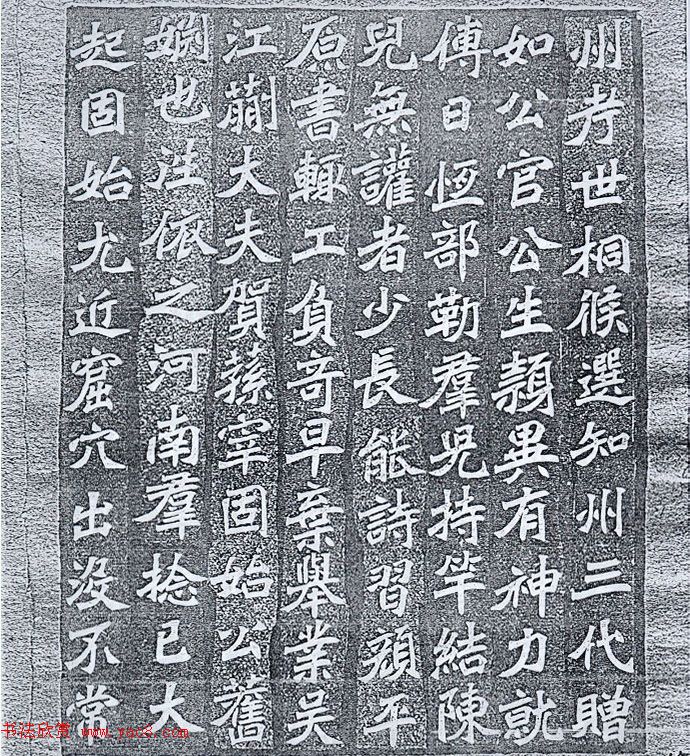 州考世桐候選知州三代贈
如公官公生穎異有神力就
傅日恆部勒羣兒持竿結陳
兒無讙者少長能詩習顏平
原書輒工負奇早棄舉業吴
江蒯大夫賀蓀宰固始公舊
婣也往依之河南羣捻已大
起固始尤近窟穴出没不常
书法欣赏 www.yac8.com